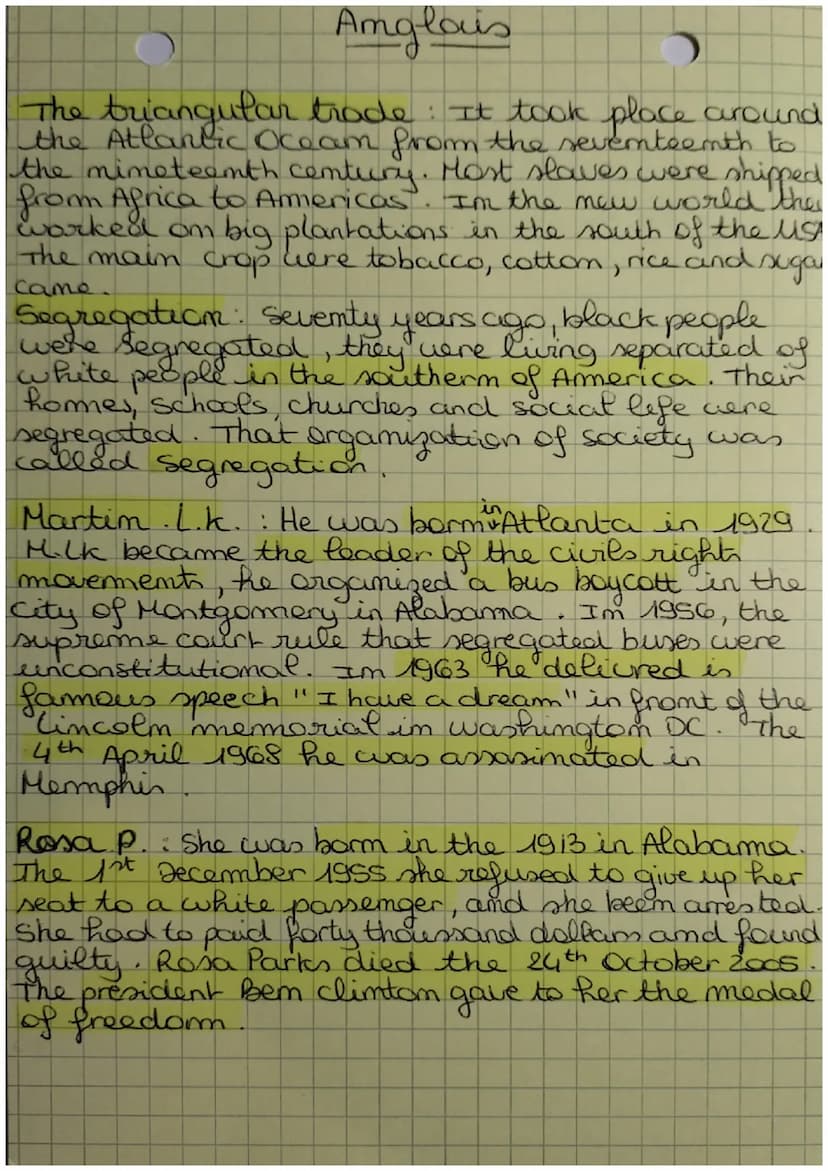 Anglais
The triangular trade : It took place around
the Atlantic Ocean from the seventeenth to
the nineteenth century. Most slaves were shipped
from Africa to Americas. In the new world the
worked on big plantations in the south of the USA
The main crop were tobacco, cotton, rice and suga
cane.
Segregation : Seventy years ago, black people
were segregated, they were living separated of
white people in the southern of America. Their
homes, schools, churches and social life were
segregated. That organization of society was
called segregation.
Martin .L.K. : He was born in Atlanta in 1929.
M.LK became the leader of the civils rights
movements, he organized a bus boycott in the
city of Montgomery in Alabama. In 1956, the
supreme court rule that segregated buses were
unconstitutional. In 1963 he delivred is
famous speech "I have a dream" in front of the
Lincoln memorial in Washington DC. The
4th April 1968 he was assasinated in
Memphis.
Rosa P. : She was born in the 1913 in Alabama.
The 1st December 1955 she refused to give up her
seat to a white passenger, and she been arrested.
She had to paid forty thoussand dollars and found
guilty. Rosa Parks died the 24th October 2005.
The president Ben Clinton gave to her the medal
of freedom.